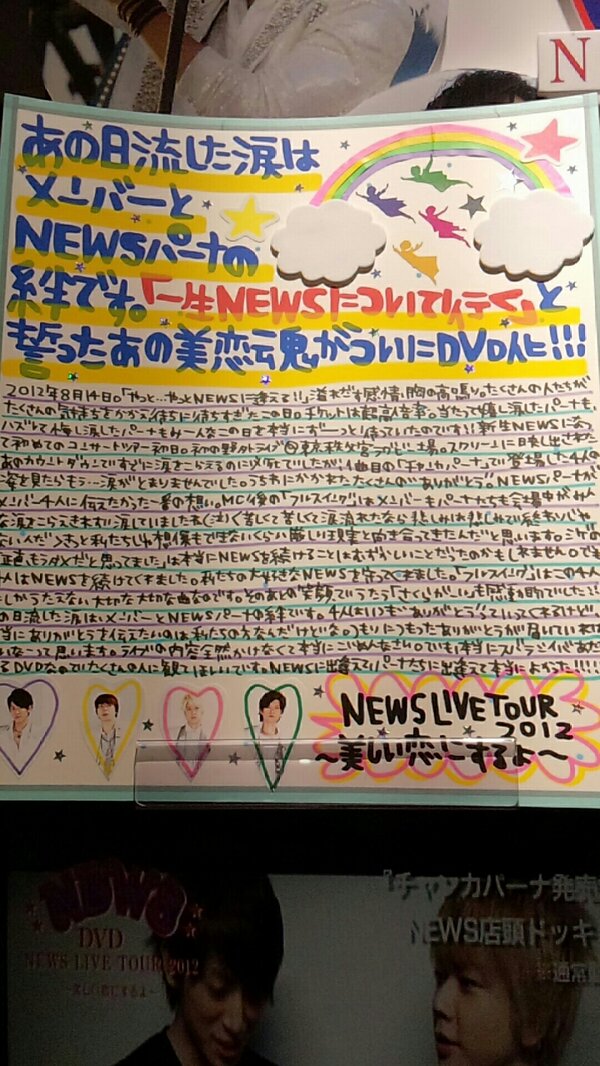 N
あの日流した涙は
メンバーと
NEWSパーナの
絆です。「一生NEWSについて行こう」と
誓ったあの美恋伝説がついにDVD化!!!
2012年8月14日。「やっと…やっとNEWSに逢える!!」溢れだす感情、胸の高鳴り。たくさんの人たちが
たくさんの気持ちをかかえ待ちに待ちすぎたこの日。チケットは超高倍率。当たって嬉し涙したパーナも、
ハズレて悔し涙したパーナもみーんなこの日を本当にずーっと待っていたのです!!新生NEWSになっ
て初めてのコンサートツアー初日。初の野外ライブ@東京秩父宮ラグビー場。スクリーンに映し出された
あのカウントダウンですでに涙をこらえるのに必死でしたが、1曲目の「チャンカパーナ」で登場した4人の
姿を見たらもう…涙がとまりませんでした。うちわにかかれたたくさんの"ありがとう"。NEWSパーナが
メンバー4人に伝えたかった一番の想い。MC後の「フルスイング」はメンバーもパーナたちも会場中がみん
な涙をこらえきれずに涙していましたね(泣)く苦しくて苦しくて涙流れたなら 悲しみは悲しみで終わんじゃ
ないんだ>きっと私たちじゃ想像もできないくらい厳しい現実と向き合ってきたんだと思います。シゲの
正直、もうダメだと思ってました」は本当にNEWSを続けることはむずかしいことだったのかもしれません。でも
人はNEWSを続けてくれました。私たちの大好きなNEWSを守ってくれました。「フルスイング」はこの4人
しかうたえない大切な大切な曲なのです。そのあとの笑顔でうたう「さくらガール」も感動的でした!!
の日流した涙はメンバーとNEWSパーナの絆です。4人はいつも"ありがとう"って言ってくれるけど、
当にありがとうを伝えたいのは私たちの方なんだけどな。つもりにつもったありがとうが届いていれば
いなって思います。ライブの内容全然かけなくて本当にごめんなさい。でも、本当にスバラシイがあふ
るDVDなのでたくさんの人に観てほしいです。NEWSに出逢えてパーナたちに出逢えて本当によかった!!!!
NEWS LIVE TOUR
2012
～美しい恋にするよ～
NEWS
DVD
NEWS LIVE TOUR 2012
～美しい恋にするよ～
『チャンカパーナ発売
NEWS店頭ドッキ
通常